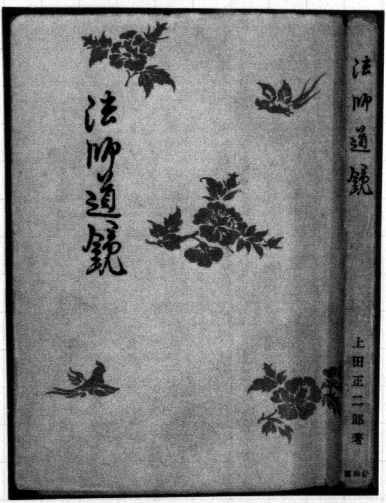 法師道鏡
法師道鏡
上田正二郎著